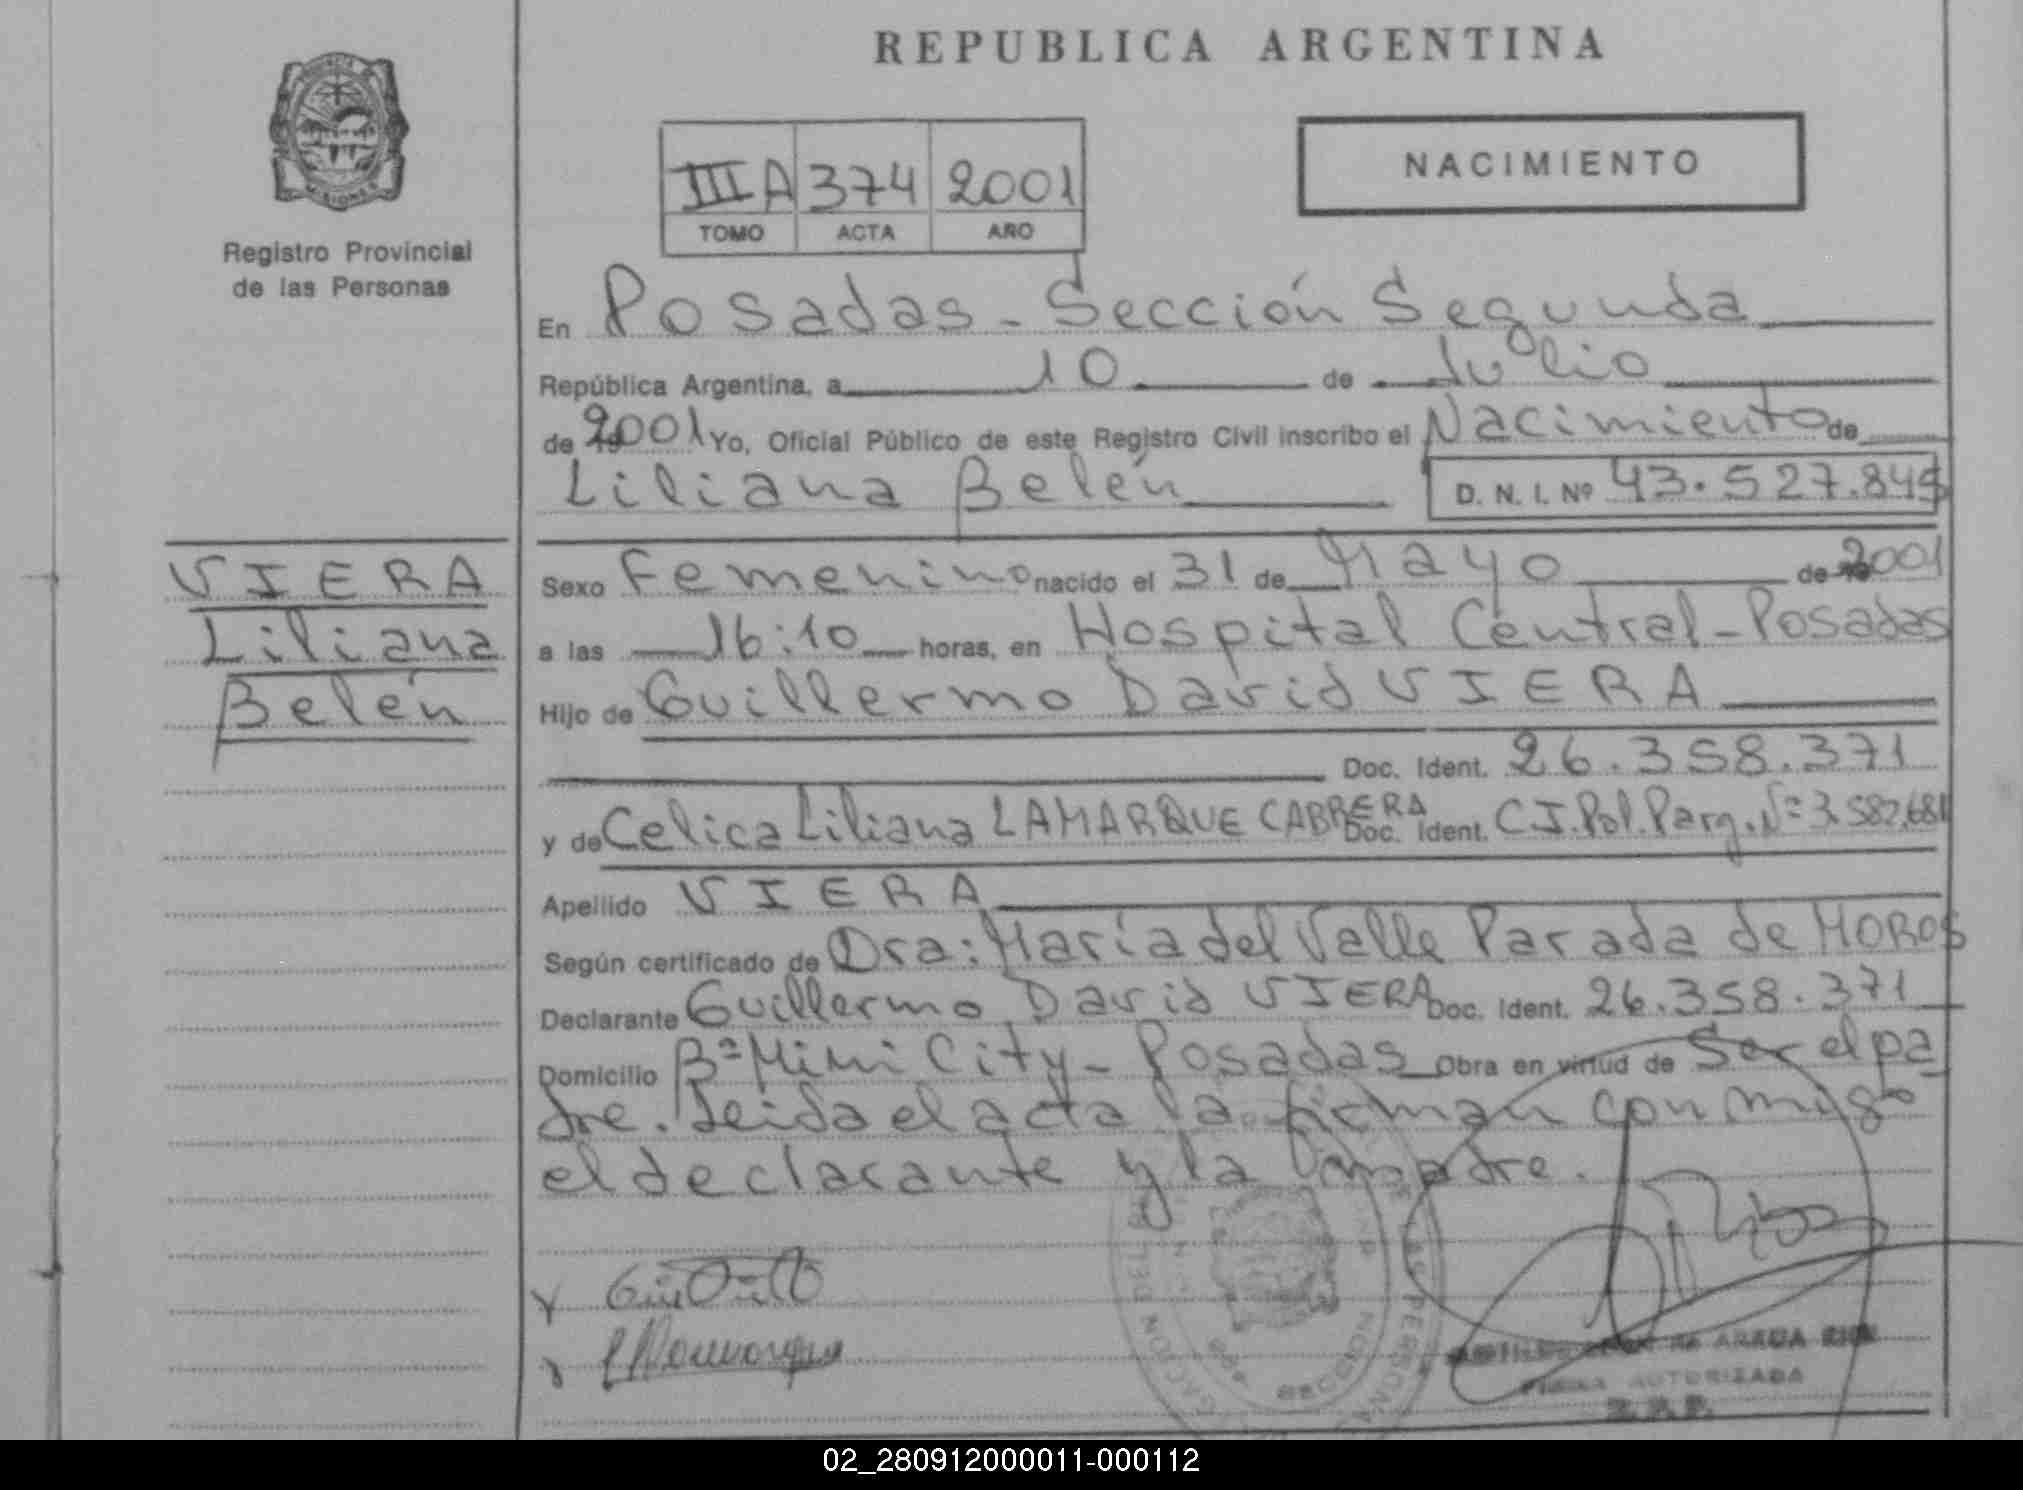 REPUBLICA ARGENTINA
NACIMIENTO
III A 374 2001
TOMO ACTA AÑO
Registro Provincial
de las Personas
En Posadas - Sección Segunda
República Argentina, a 10 de Julio
de 2001 Yo, Oficial Público de este Registro Civil inscribo el Nacimiento de
Liliana Belén D. N. I. Nº 43.527.845
VIERA
Liliana
Belén
Sexo Femenino nacido el 31 de Mayo de 2001
a las 16:10 horas, en Hospital Central - Posadas
Hijo de Guillermo David VIERA
Doc. Ident. 26.358.371
y de Celica Liliana LAMARQUE CABRERA Doc. Ident. C.I. Pol. Parg. Nº 3.582.681
Apellido VIERA
Según certificado de Dra: María del Valle Parada de MOROS
Declarante Guillermo David VIERA Doc. Ident. 26.358.371
Domicilio Bº Mini City - Posadas Obra en virtud de Ser el pa
dre. Leida el acta la firman con migo
el declarante y la madre.
FIRMA AUTORIZADA
R.P.P.
02_280912000011-000112